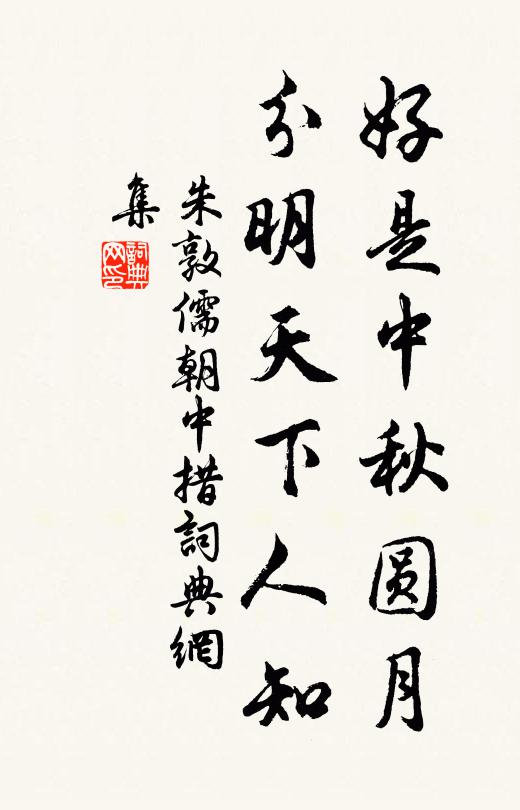 好是中秋圆月
分明天下人知
朱敦儒朝中措詞典網
集
詞典
网印